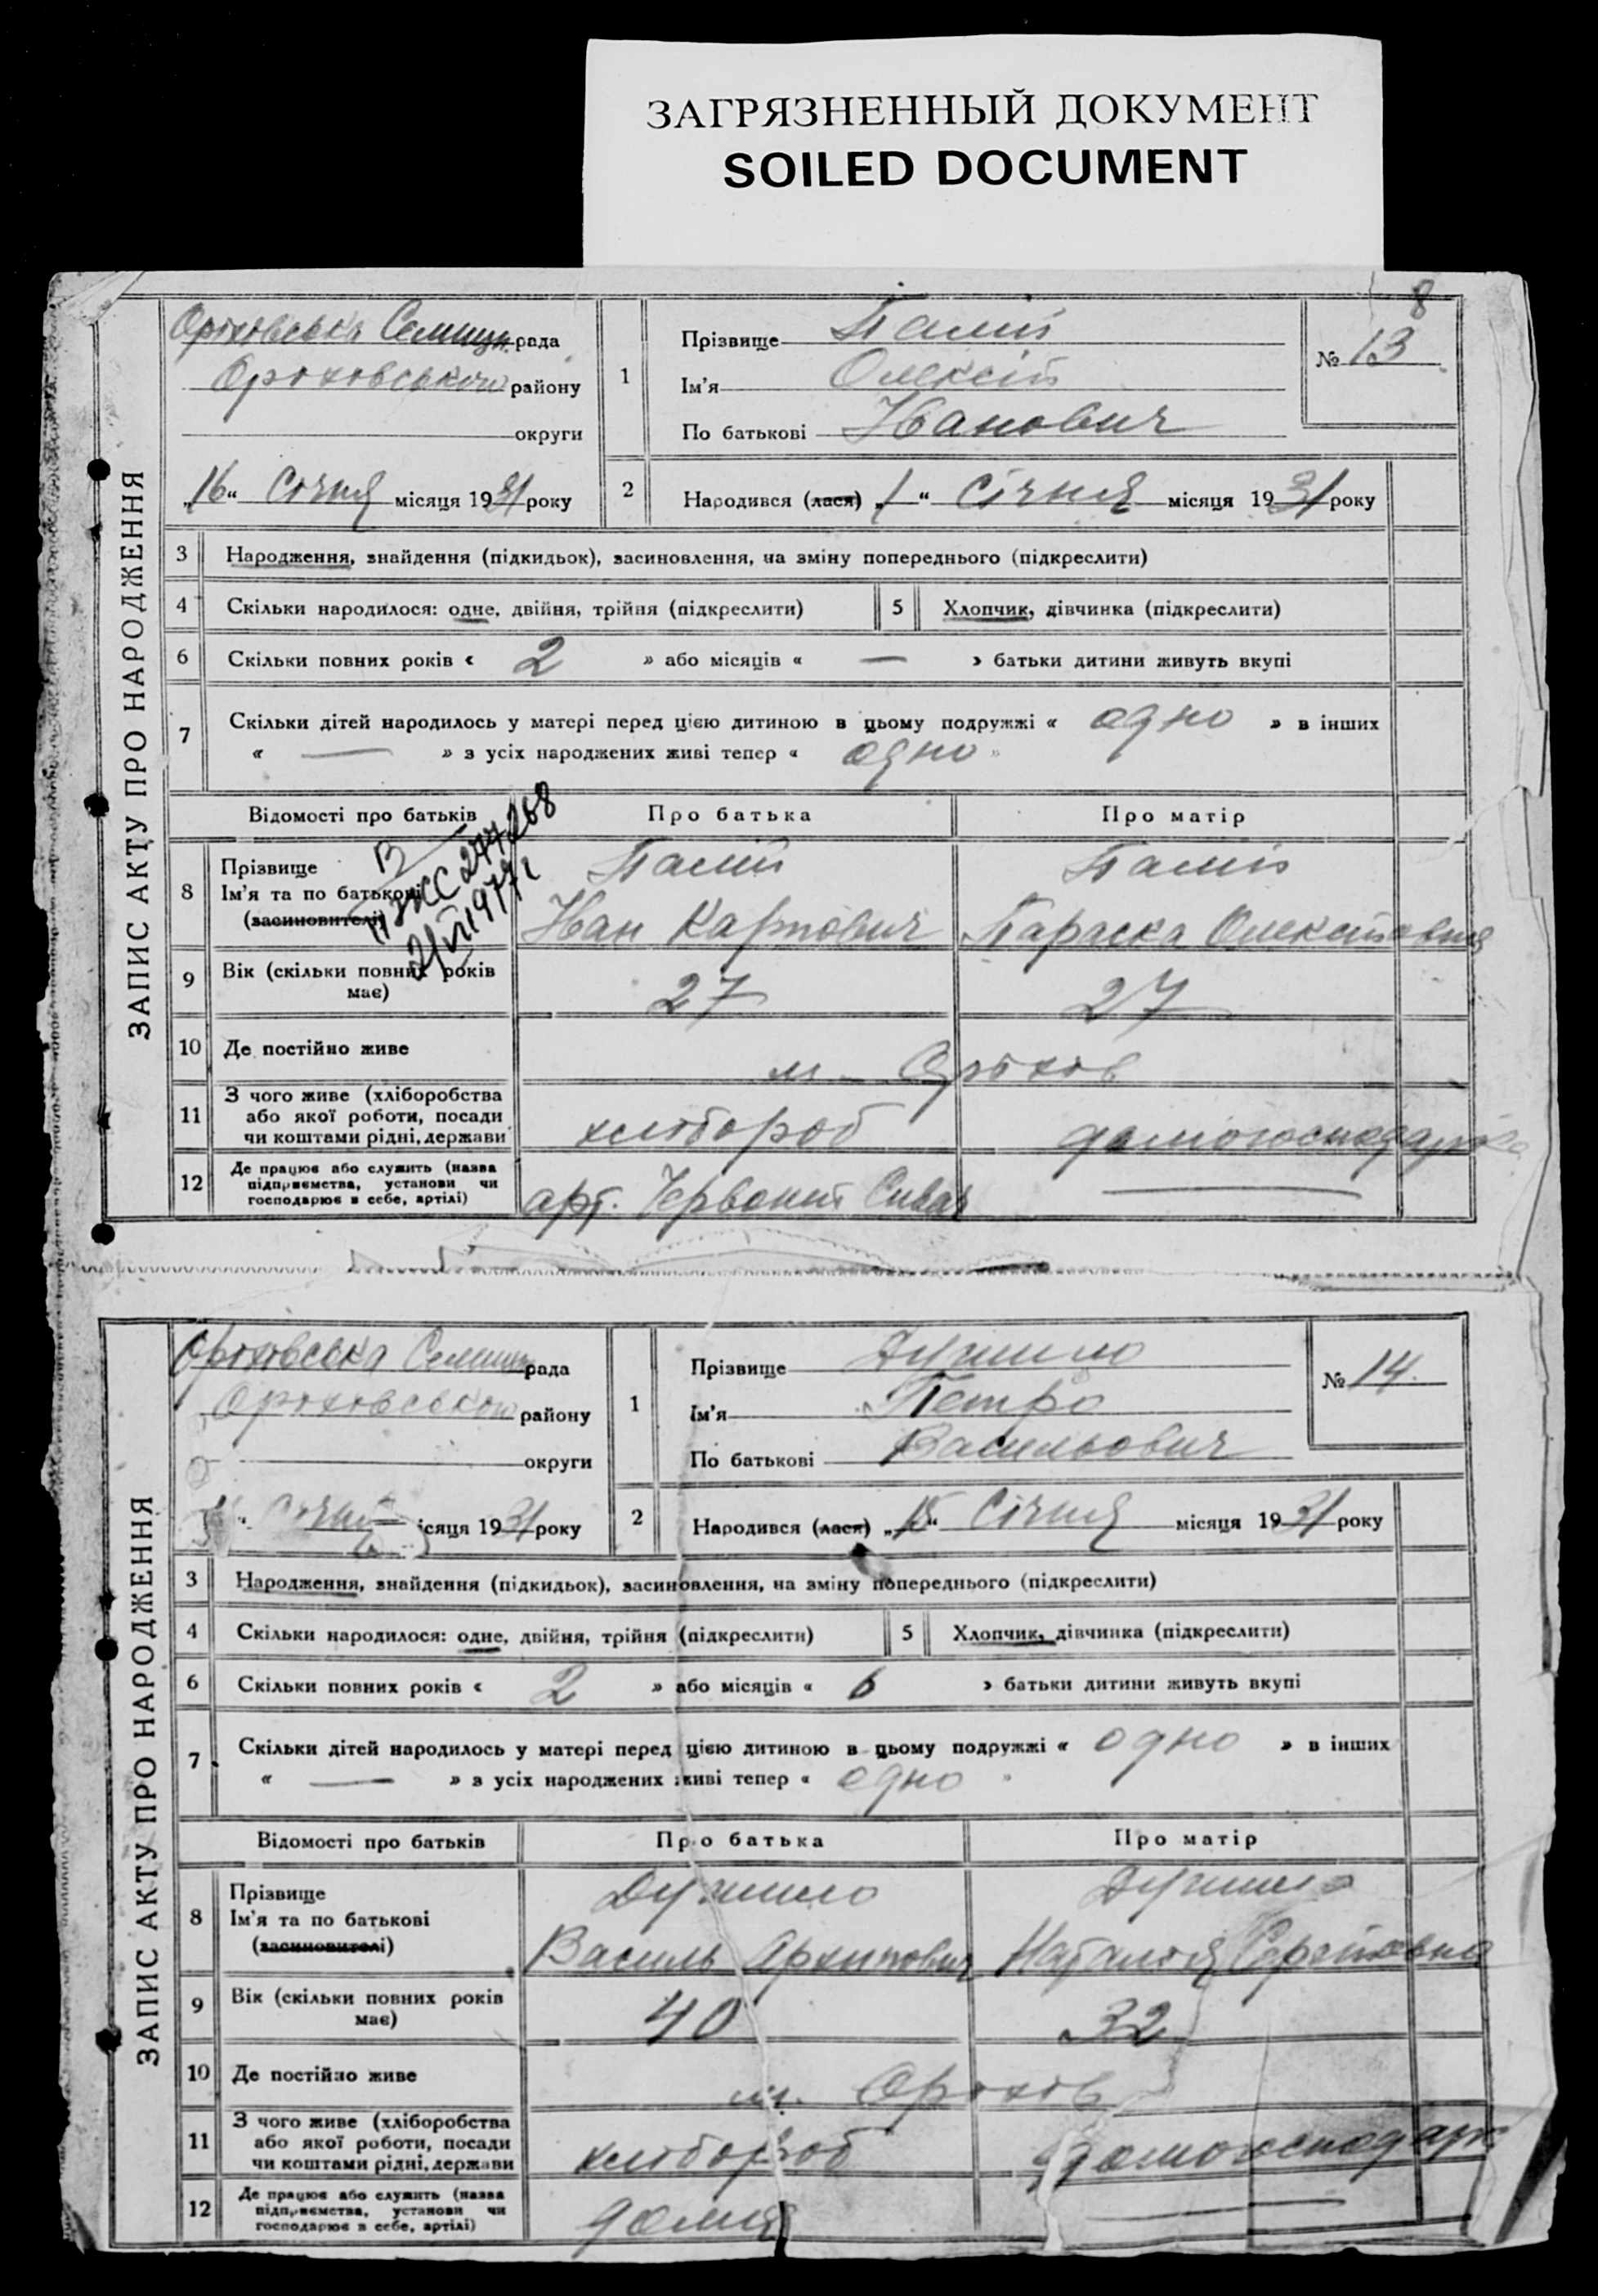 ЗАГРЯЗНЕННЫЙ ДОКУМЕНТ
SOILED DOCUMENT
8
ЗАПИС АКТУ ПРО НАРОДЖЕННЯ
Оріховська Селищн. рада
Оріховського району
округи
„16“ Січня місяця 1931 року
1
Прізвище Палій
Ім'я Олексій
По батькові Іванович
№ 13
2
Народився (лася) „1“ Січня місяця 1931 року
3 Народження, знайдення (підкидьок), засиновлення, на зміну попереднього (підкреслити)
4 Скільки народилося: одне, двійня, трійня (підкреслити)
5 Хлопчик, дівчинка (підкреслити)
6 Скільки повних років « 2 » або місяців « — » батьки дитини живуть вкупі
7 Скільки дітей народилось у матері перед цією дитиною в цьому подружжі « одно » в інших
« — » з усіх народжених живі тепер « одно »
Відомості про батьків Про батька Про матір
8 Прізвище Палій Палій
Ім'я та по батькові
(засиновителі) Іван Карпович Параска Олексіївна
277268
9 Вік (скільки повних років
має) 27 27
10 Де постійно живе м. Оріхів
11 З чого живе (хліборобства
або якої роботи, посади
чи коштами рідні, держави хлібороб домогосподарка
12 Де працює або служить (назва
підприємства, установи чи
господарює в себе, артілі) арт. Червоний —
ЗАПИС АКТУ ПРО НАРОДЖЕННЯ
Оріховська Селищн рада
Оріховського району
округи
Січня місяця 1931 року
1
Прізвище
Ім'я Петро
По батькові Васильович
№ 14
2
Народився (лася) Січня місяця 1931 року
3 Народження, знайдення (підкидьок), засиновлення, на зміну попереднього (підкреслити)
4 Скільки народилося: одне, двійня, трійня (підкреслити)
5 Хлопчик, дівчинка (підкреслити)
6 Скільки повних років « 2 » або місяців « 6 » батьки дитини живуть вкупі
7 Скільки дітей народилось у матері перед цією дитиною в цьому подружжі « одно » в інших
« — » з усіх народжених живі тепер « одно »
Відомості про батьків Про батька Про матір
8 Прізвище
Ім'я та по батькові
(засиновителі) Василь Архипович Наталія Сергіївна
9 Вік (скільки повних років
має) 40 32
10 Де постійно живе м. Оріхів
11 З чого живе (хліборобства
або якої роботи, посади
чи коштами рідні, держави хлібороб домогосподарк
12 Де працює або служить (назва
підприємства, установи чи
господарює в себе, артілі) дома —